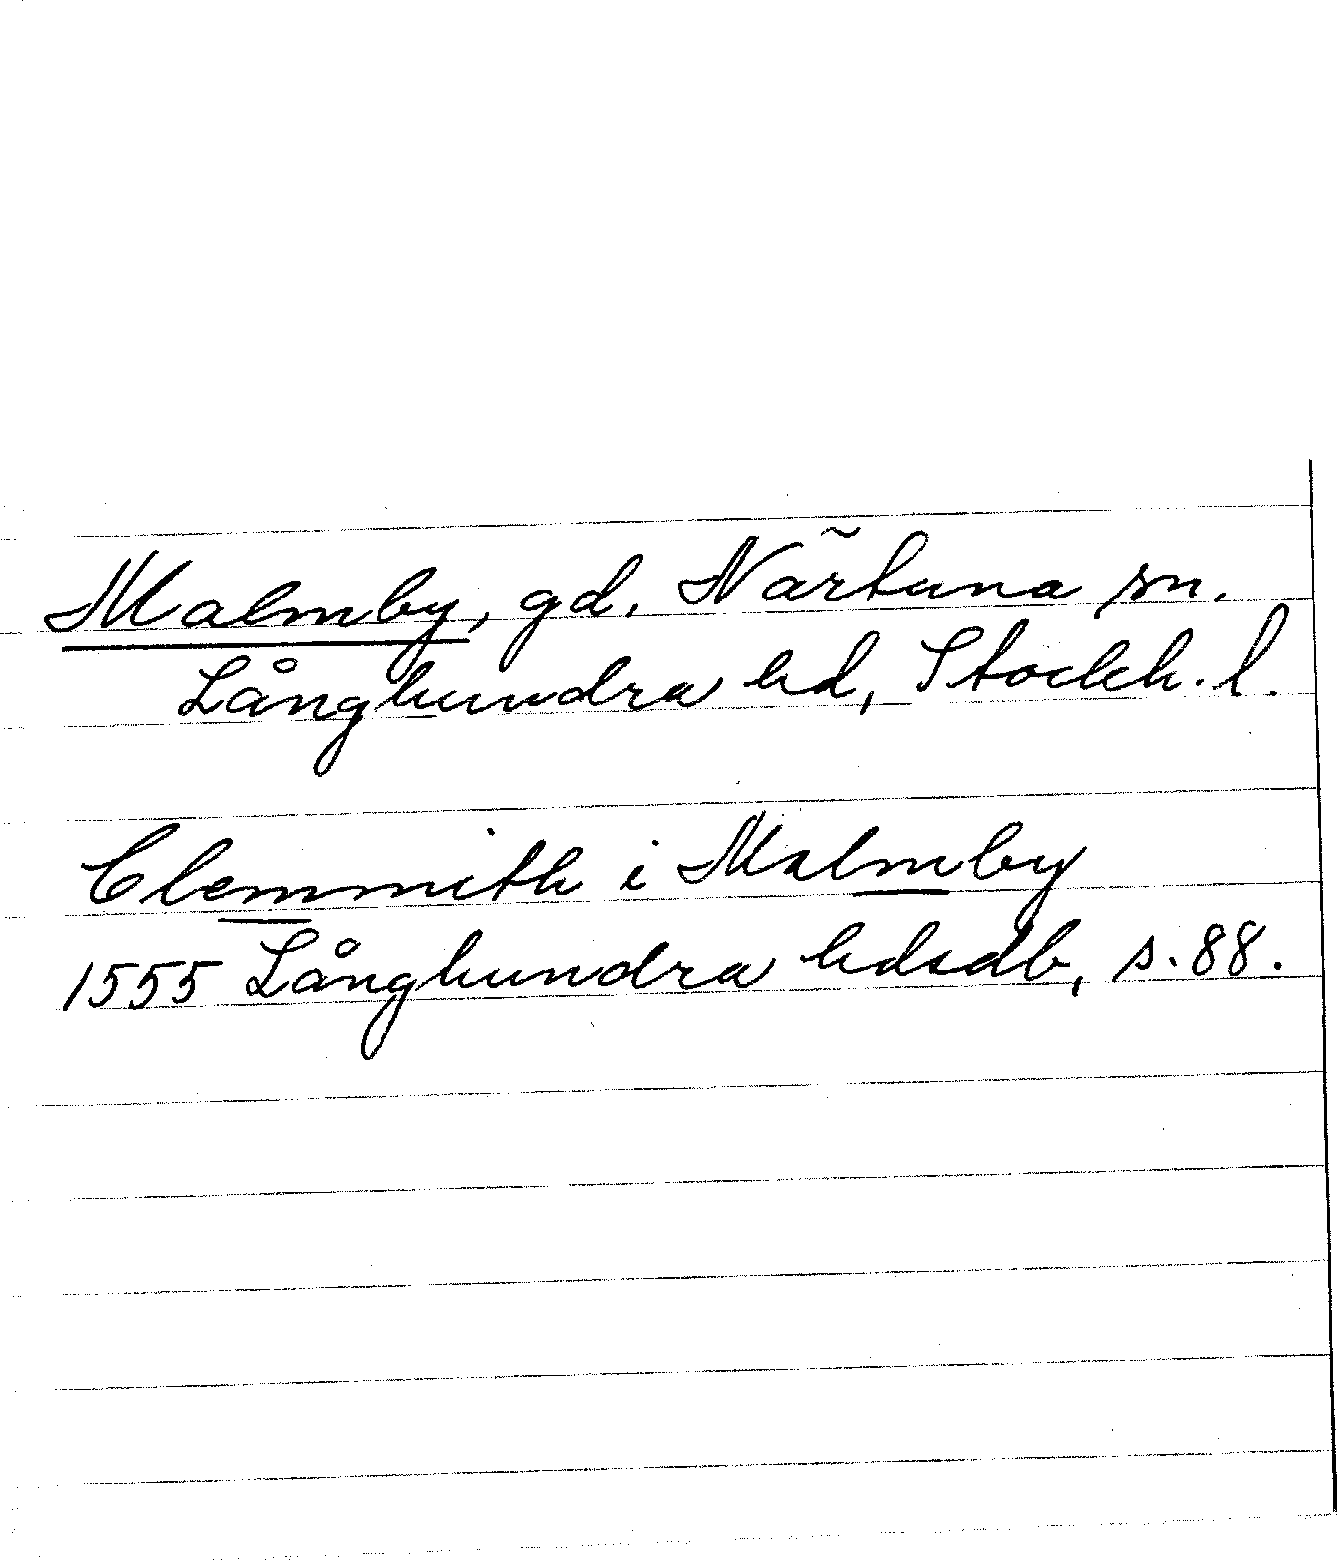 Malmby, gd, Närtuna sn.
Långhundra hd, Stockh. l.
Clemmith i Malmby
1555 Långhundra hdsdb, s. 88.